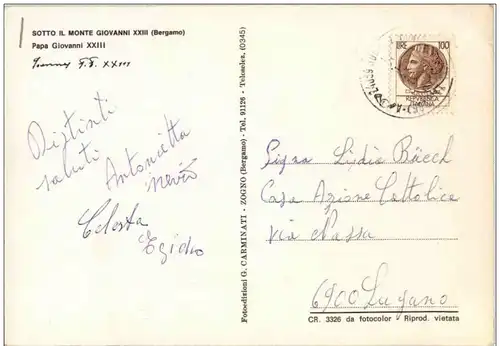 SOTTO IL MONTE GIOVANNI XXIII (Bergamo)
Papa Giovanni XXIII
Distinti
saluti
Antonietta
Celesta
Egidio
Fotoedizioni G. CARMINATI - ZOGNO (Bergamo) - Tel. 91126 - Teleselez. (0345)
LIRE 100
REPVBBLICA
ITALIANA
Signa Lidia Büech
Casa Azione Cattolica
via Nassa
6900 Lugano
CR. 3326 da fotocolor Riprod. vietata